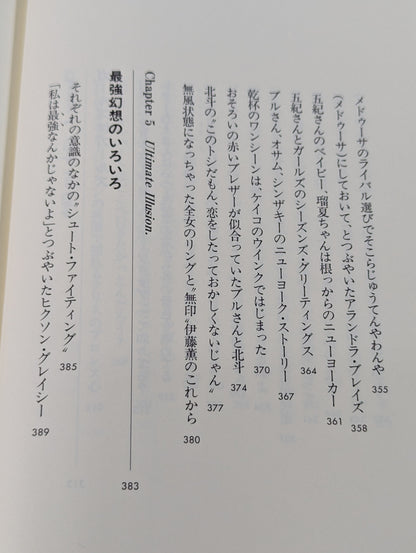 メドゥーサのライバル選びでそこらじゅうてんやわんや 355
(メドゥーサ)にしておいて、とつぶやいたアランドラ・ブレイズ 358
五紀さんのベイビー、瑠夏ちゃんは根っからのニューヨーカー 361
五紀さんとガールズのシーズンズ・グリーティングス 364
ブルさん、オサム、シンザキーのニューヨーク・ストーリー 367
乾杯のワンシーンは、ケイコのウインクではじまった 370
おそろいの赤いブレザーが似合っていたブルさんと北斗 374
北斗の〝このトシだもん、恋をしたっておかしくないじゃん〟 377
無風状態になっちゃった全女のリングと〝無印〟伊藤薫のこれから 380
Chapter 5 Ultimate Illusion.
最強幻想のいろいろ 383
それぞれの意識のなかの〝シュート・ファイティング〟 385
「私は最強なんかじゃないよ」とつぶやいたヒクソン・グレイシー 389